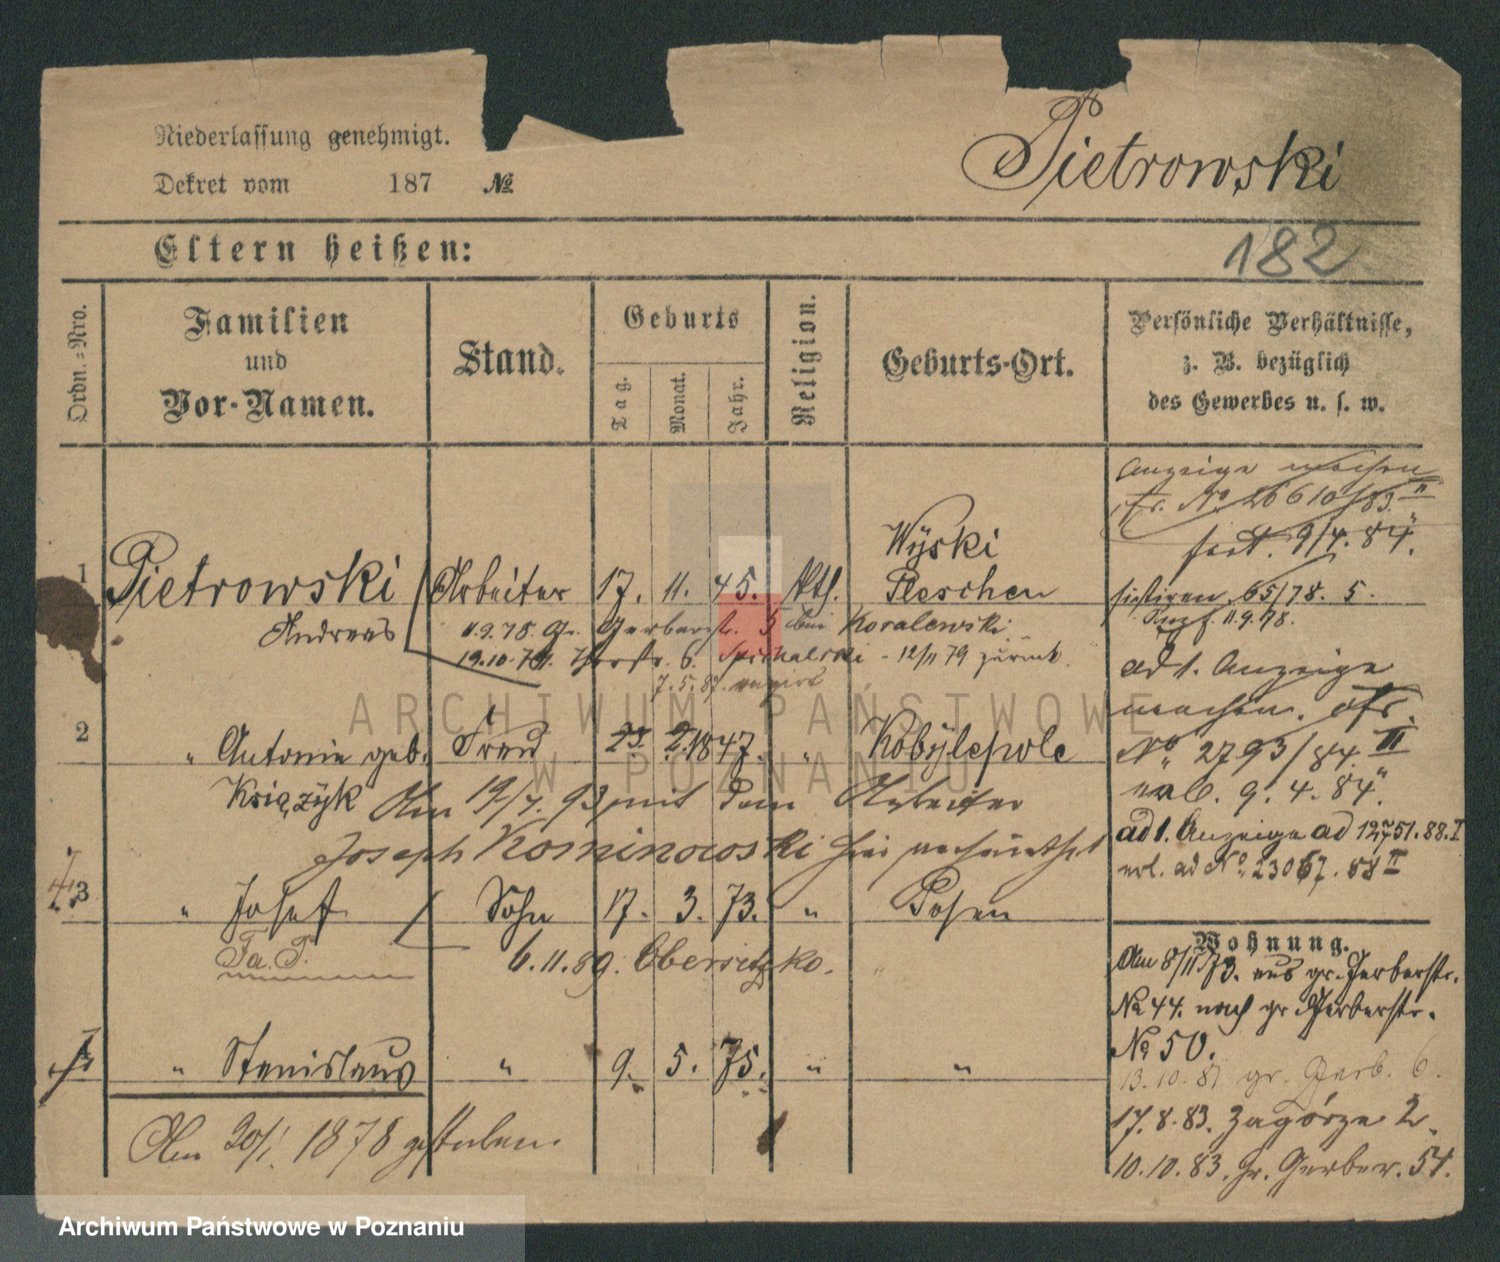 Niederlassung genehmigt.
Dekret vom 187 №
Pietrowski
182
Eltern heißen:
Ordn.-Nro.
Familien
und
Vor-Namen.
Stand.
Geburts
Tag.
Monat.
Jahr.
Religion.
Geburts-Ort.
Persönliche Verhältnisse,
z. B. bezüglich
des Gewerbes u. s. w.
Anzeige machen
No 26610/83 II
9/4. 84.
1 Pietrowski Arbeiter 17. 11. 45. kth. Wyski Pleschen
sistiren 65/78. 5.
Andreas
11.9.78 Gr. Gerberstr. 5 bei Koralewski
11.9.78.
19.10.78. 6. Spichalski - 12/11 79 zurück.
7. 5. 87.
ad 1. Anzeige
machen.
2 " Antonie geb. Frau 23 2. 1847. " Kobylepole
No. 2793/84. II
9. 4. 84.
Książyk Am 19/7. 93 mit dem Arbeiter
Joseph Kominowski hier verheirathet
ad 1. Anzeige ad 12751. 88. I
erl. ad No. 23067. 88 II
3 " Josef Sohn 17. 3. 73. " Posen
Fa. P.
6. 11. 89. Obersitzko.
Wohnung.
Am 8/11 73. aus gr. Gerberstr.
No 44. nach gr. Gerberstr.
No 50.
" Stanislaus " 9. 5. 75. " "
13. 10. 81 gr. Gerb. 6.
Am 30/1. 1878 gestorben.
17. 8. 83. Zagórze 2.
10. 10. 83. Gr. Gerber. 54.
ARCHIWUM PAŃSTWOWE
W POZNANIU
Archiwum Państwowe w Poznaniu